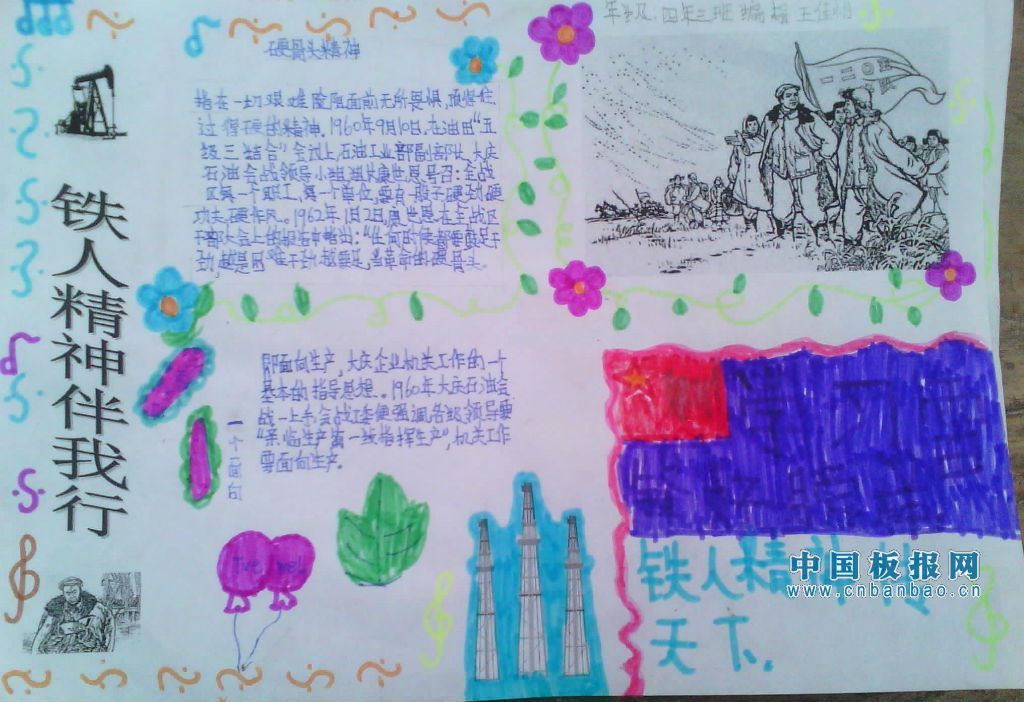 年级:四年三班 编辑 王佳
硬骨头精神
指在一切艰难险阻面前无所畏惧,顶得住
过得硬的精神。1960年9月10日,在油田“五
级三结合”会议上,石油工业部副部长、大庆
石油会战领导小组组长康世恩号召:全战
区每一个职工,每一个单位,要有一股子硬劲,硬
功夫,硬作风。1962年1月2日,康世恩在全战区
干部大会上的报告中指出:“任何时候都要鼓足干
劲,越是困难干劲越要足,当革命的硬骨头。
铁人精神伴我行
一个面向
即面向生产,大庆企业机关工作的一个
基本的指导思想。1960年大庆石油会
战一上手会战工委便强调各级领导要
“亲临生产第一线指挥生产”,机关工作
要面向生产。
学习
铁人精神传
天下.
中国板报网
www.cnbanbao.cn